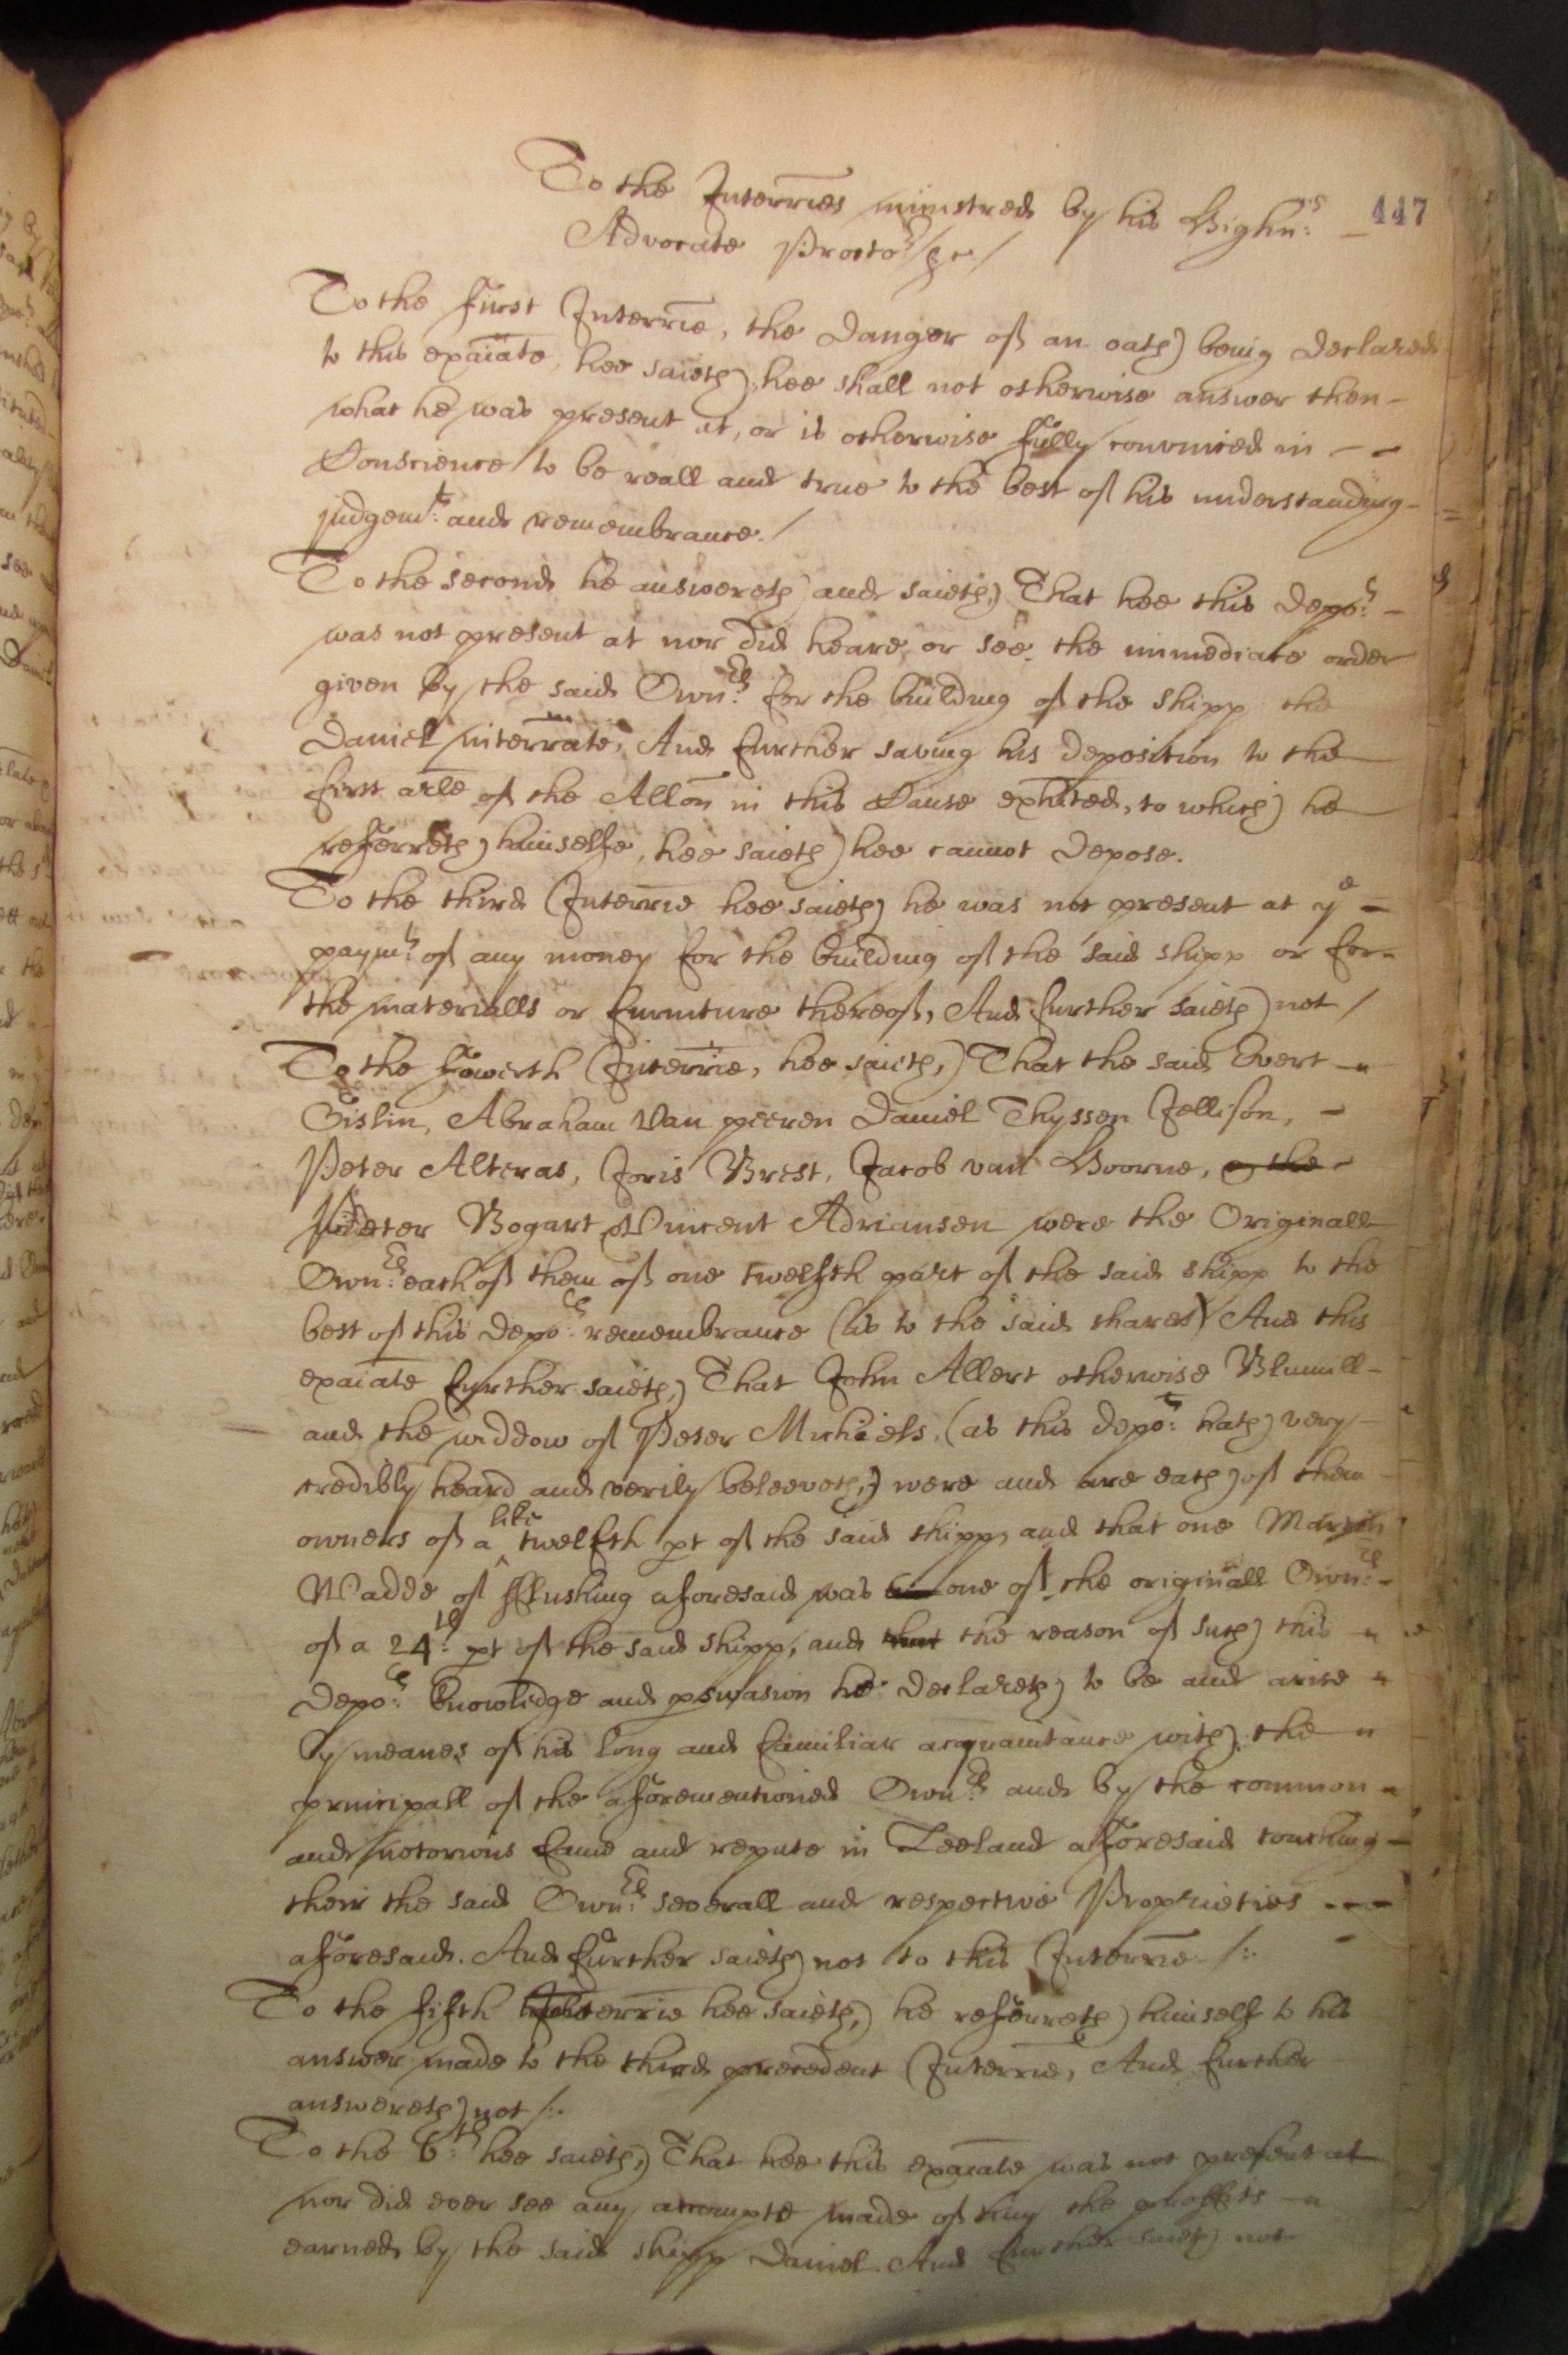 To the Interries ministred by his Highn:s 447
Advocate Procto:r /&c/
To the first Interrie, the danger of an oath being declared
to this exaiate, hee saieth, hee shall not otherwise answer then -
what he was present at, or is otherwise fully convinced in - -
Conscience to be reall and true to the best of his understanding -
judgem:t and remembrance. /
To the second he answereth and saieth, That hee this depo:t -
was not present at nor did heare or see the immediate order
given by the said Own:rs for the building of the shipp the
Daniel interrate, And further saving his deposition to the
first arle of the Allon in this Cause exhited, to which he
referreth himselfe, hee saieth hee cannot depose.
To the third Interrie hee saieth he was not present at ye -
paym:t of any money for the building of the said shipp or for -
the materialls or furniture thereof, And further saieth not /
To the fowerth Interrie, hee saieth, That the said Evert -
Gislin, Abraham Van peeren Daniel Thyssen Jellison, -
Peter Alteras, Joris Brest, Jacob van Hoorne, -
Pieter Bogart Vincent Adriansen were the Originall
Own:rs each of them of one twelfth part of the said shipp to the
best of this depo:ts remembrance (as to the said shares) And this
exaiate further saieth, That John Allert otherwise Blumill -
and the widdow of Peter Michiels, (as this depo:t hath very -
credibly heard and verily beleeveth,) were and are each of them -
owners of a like twelfth pt of the said shipp, and that one Martin
Wadde of fflushing aforesaid was one of the originall Own:rs -
of a 24:th pt of the said shipp, and that the reason of such this -
depo:ts knowledge and pswasion he declareth to be and arise -
by meanes of his long and familiar acquaintance with the -
principall of the aforementioned Own:rs and by the common -
and notorious fame and repute in Zeeland aforesaid touching -
their the said Own:rs severall and respective Proprieties - - -
aforesaid. And further saieth not to this Interrie /:
To the fifth Interrie hee saieth, he referreth himself to his
answer made to the third precedent Interrie, And further
answereth not /:.
To the 6:th hee saieth, That hee this exaiate was not present at
nor did ever see any accompte made of the proffits -
earned by the said shipp Daniel. And further saieth not